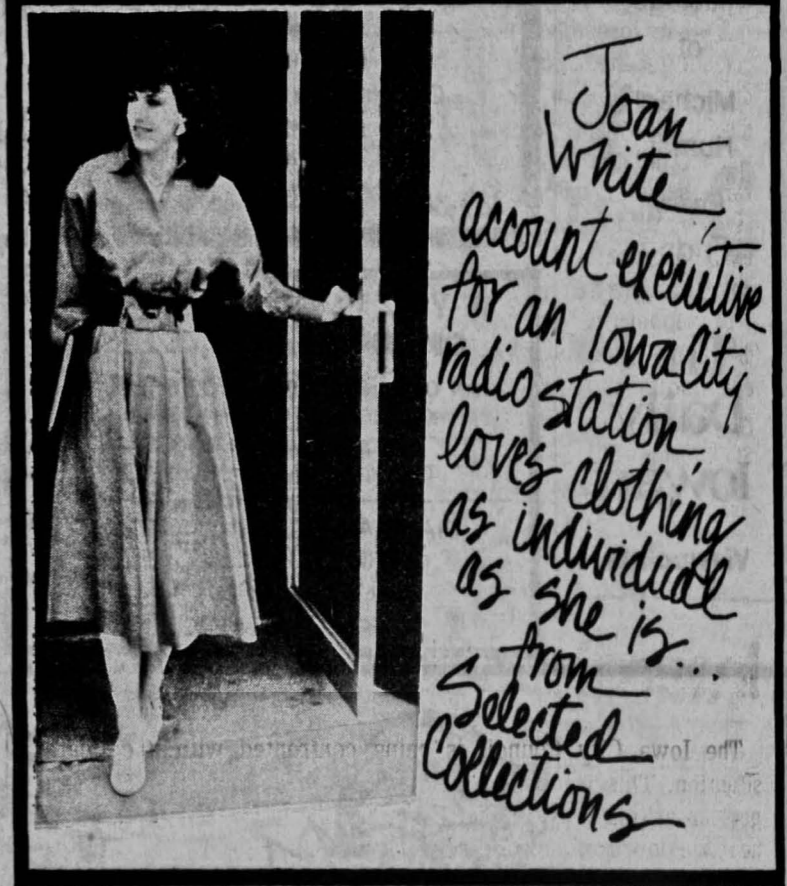 Joan
White,
account executive
for an Iowa City
radio station,
loves clothing
as individual
as she is...
from
Selected
Collections
The Iowa
confronted with